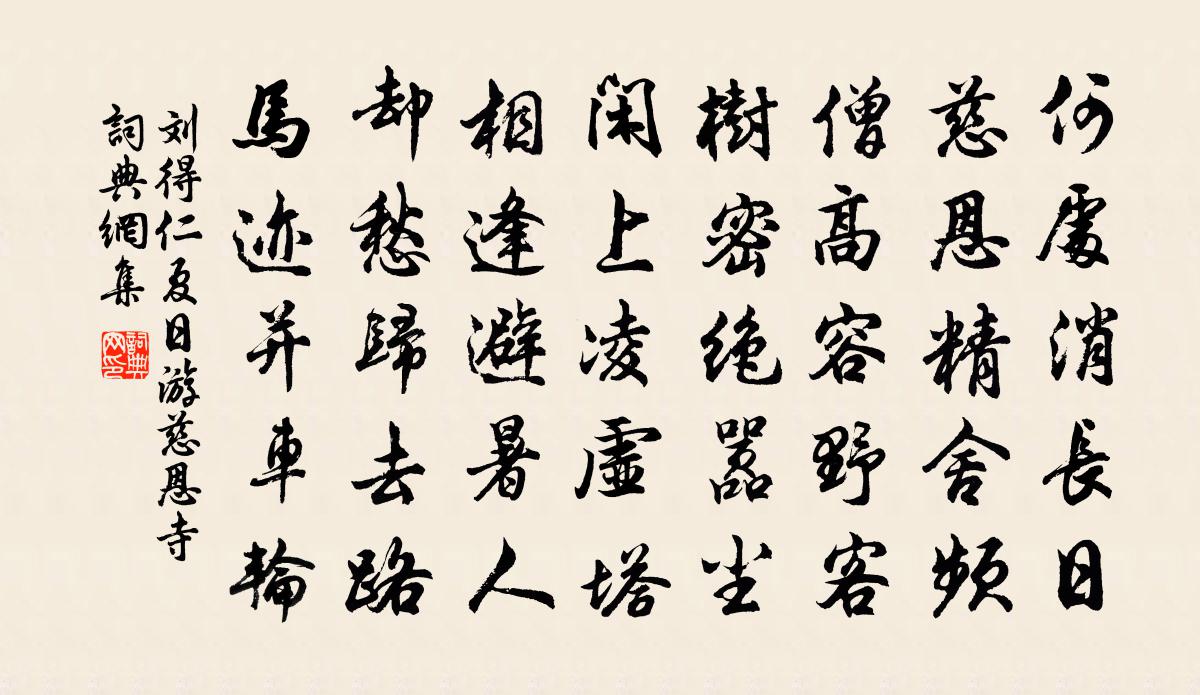 何處消長日
慈恩精舍頻
僧高容野客
樹密绝嚣坐
閑上凌虚塔
相逢避暑人
却愁歸去路
馬迹并車輪
刘得仁夏日游慈恩寺
詞典網集
詞典网印